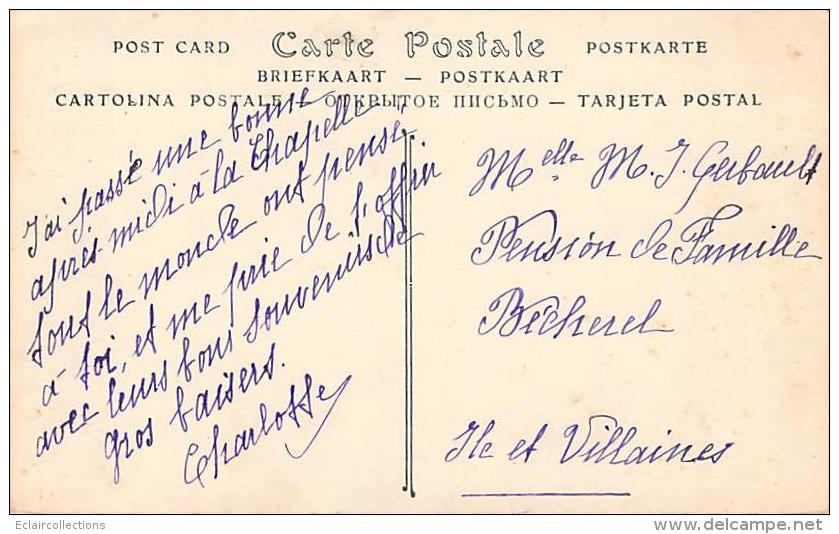 POST CARD Carte Postale POSTKARTE
BRIEFKAART — POSTKAART
CARTOLINA POSTALE — ОТКРЫТОЕ ПИСЬМО — TARJETA POSTAL
J'ai passé une bonne
après-midi à la Chapelle,
tout le monde ont pensé
à toi, et me prie de t'offrir
avec leurs bons souvenirs de
gros baisers.
Charlotte
Melle M. J. Gerbault
Pension de Famille
Bécherel
Ile et Villaines
Eclaircollections
delcampe.net